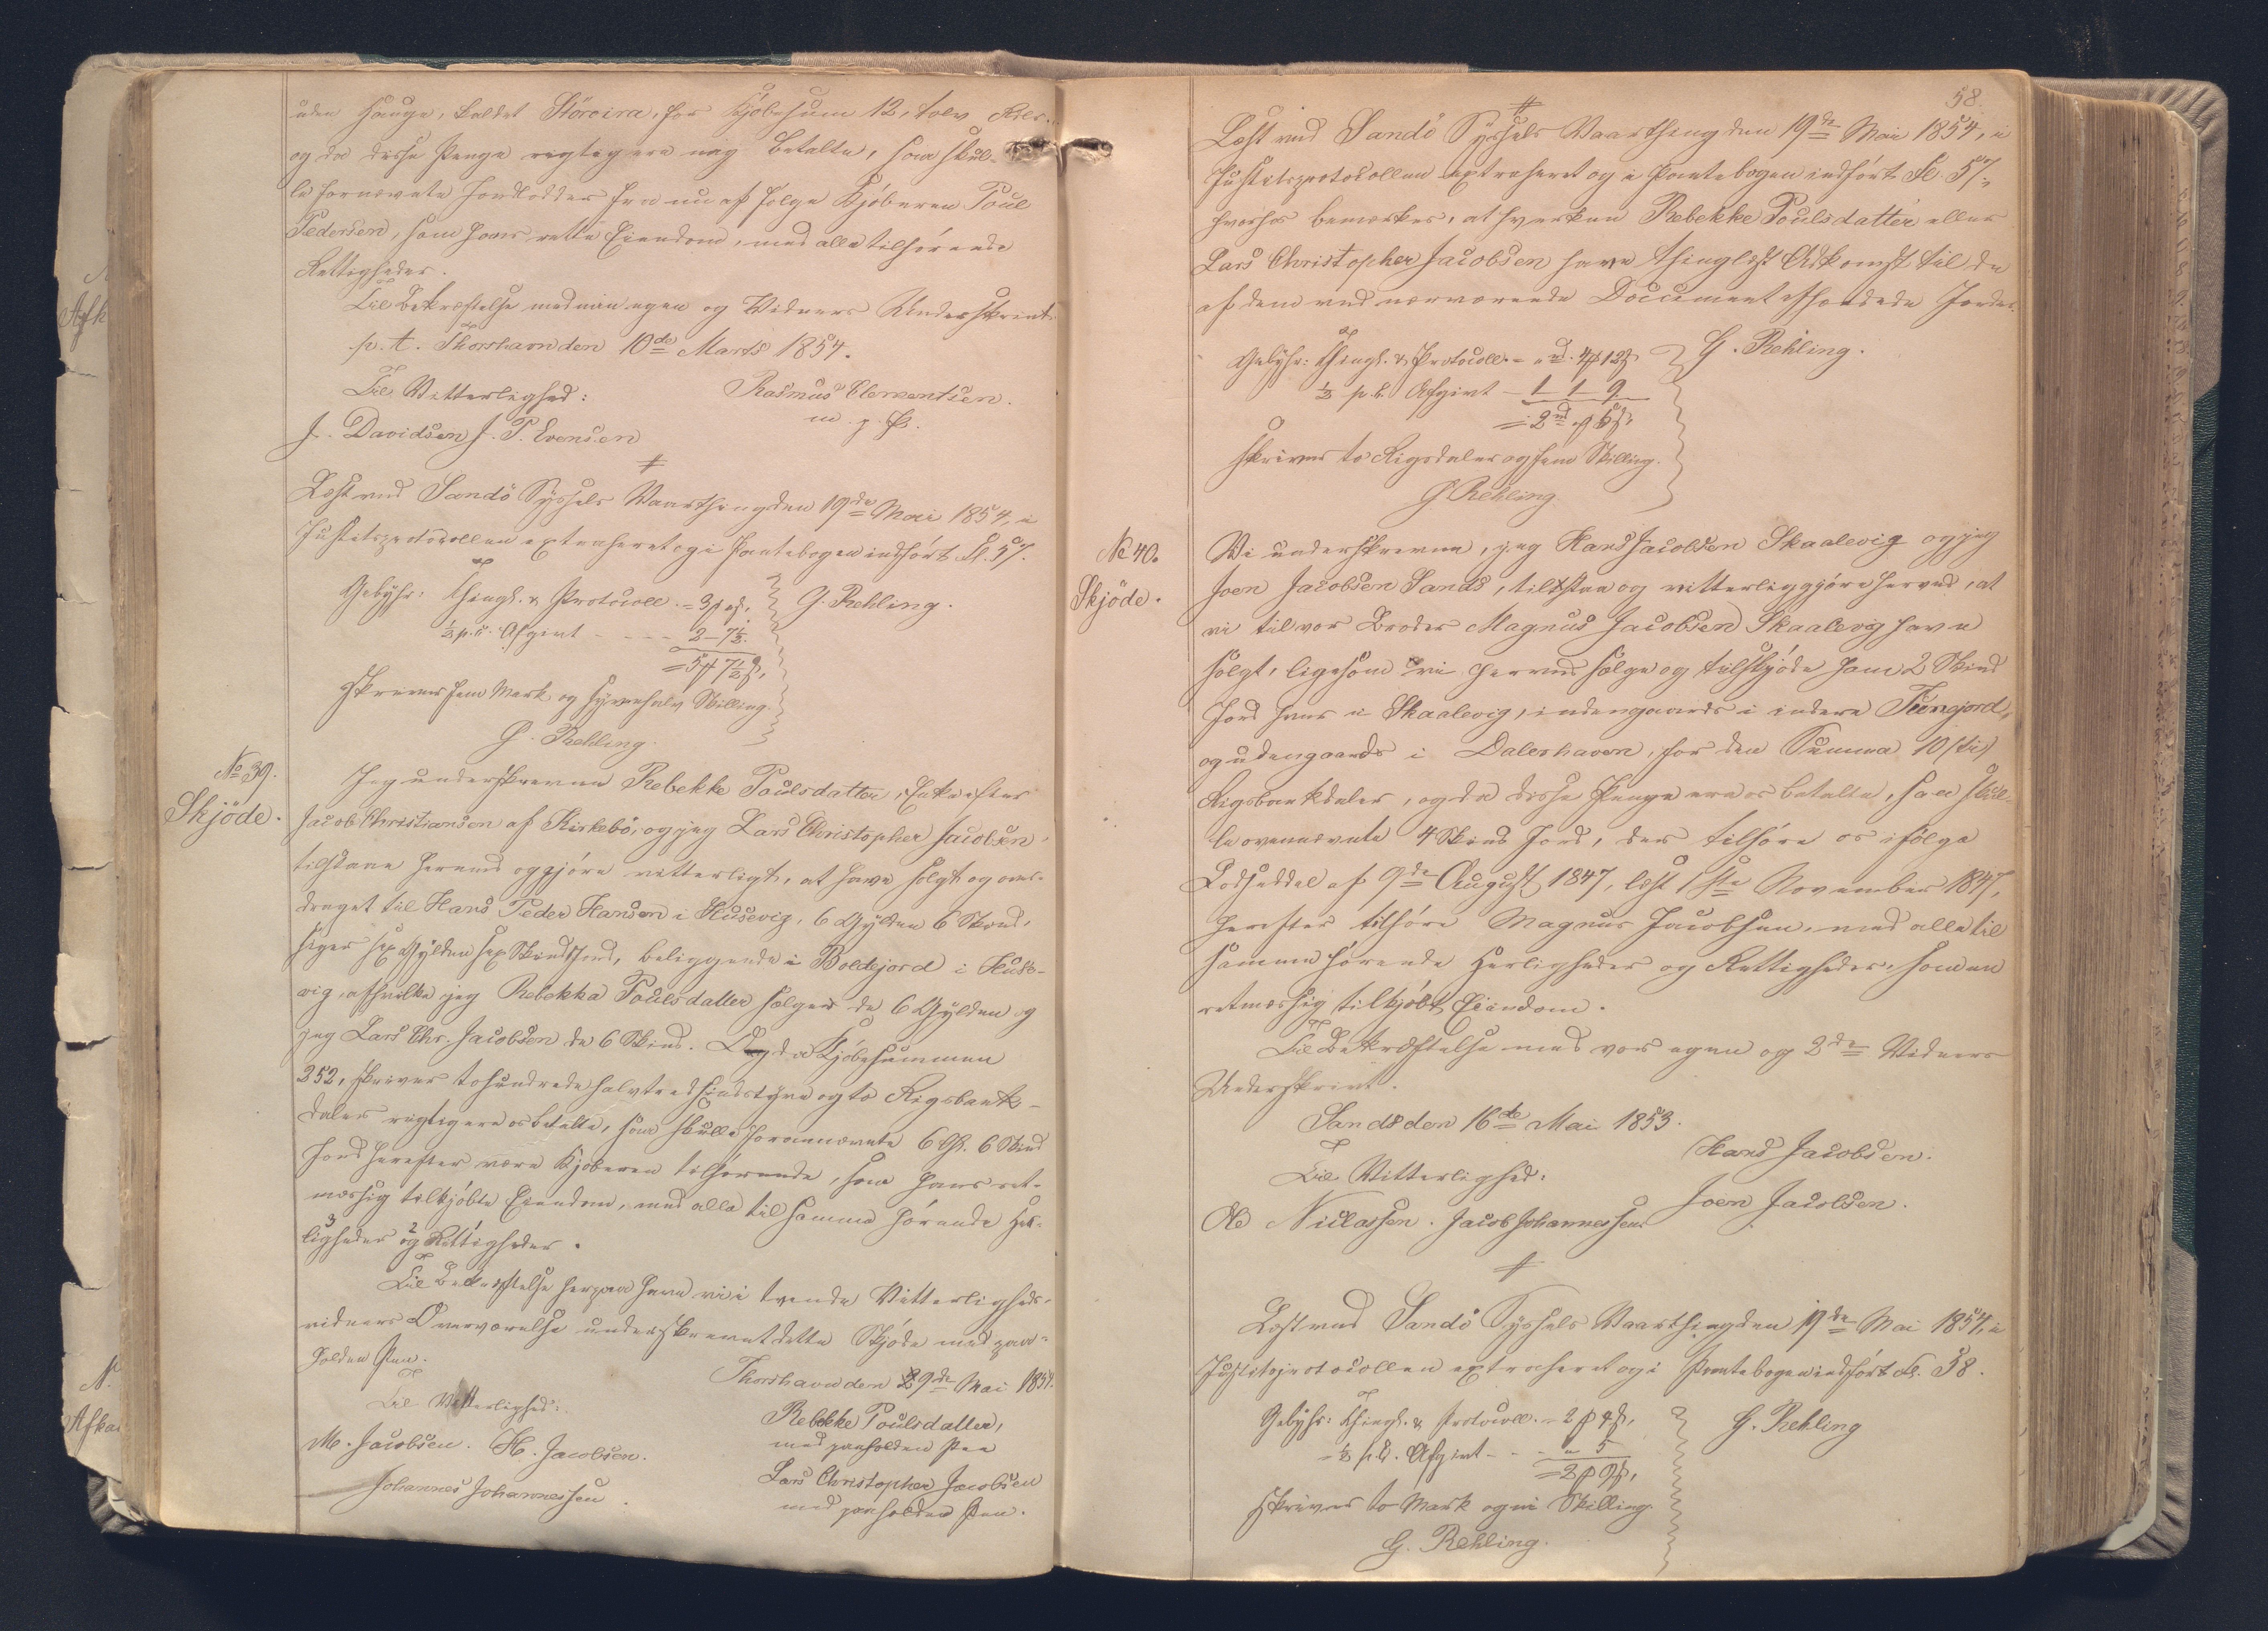 uden Hauge, kaldet Störoira, for Kjöbesum 12, tolv Rdlr.
og da disse Penge rigtig ere mig betalte, saa skul-
le fornævnte Jordlodder fra nu af følge Kjöberen Poul
Pedersen, som hans rette Eiendom, med alle tilhörende
Rettigheder.
Til Bekræftelse med min egen og Vidners Underskrivt.
p. t. Thorshavn den 10de Marts 1854.
Til Vitterlighed: Rasmus Clementsen.
m. p. P.
J. Davidsen J. P. Evensen
Læst ved Sandö Syssels Vaarthing den 19de Mai 1854, i
Justitsprotocollen extraheret og i Pantebogen indfört Fl. 57.
Gebyhr: Thingl. & Protocoll. = 3 ß. G. Rehling.
½ p. C. Afgivt - - - - 2 - 7½.
= 5 7½ ß.
skriver fem Mark og syvenhalv Skilling.
G. Rehling.
No 39.
Skjöde.
Jeg underskrevne Rebekke Poulsdatter, Enke efter
Jacob Christiansen af Kirkebö, og jeg Lars Christopher Jacobsen,
tilstaae herved og gjöre vitterligt, at have solgt og over-
draget til Hans Peder Hansen i Husevig, 6 Gylden 6 Skind,
siger sex Gylden sex Skind Jord, beliggende i Boldejord i Huse-
vig, af hvilke jeg Rebekka Poulsdatter sælger de 6 Gylden og
jeg Lars Chr. Jacobsen de 6 Skind. Og da Kjöbesummen
252, skriver tohundrede halvtredsindstyve og to Rigsbank-
daler rigtig ere os betalte, saa skulle forannævnte 6 G. 6 Skind
Jord herefter være Kjöberen tilhörende, som hans ret-
mæssig tilkjöbte Eiendom, med alle til samme hörende Her-
ligheder 3 og 2 Rettigheder.
Til Bekræftelse herpaa have vi i tvende Vitterligheds-
vidners Overværelse underskrevet dette Skjöde med paa-
holden Pen.
Thorshavn den 29de Mai 1854.
Til Vitterlighed: Rebekke Poulsdatter,
M. Jacobsen. H. Jacobsen. med paaholden Pen
Johannes Johannessen. Lars Christopher Jacobsen
med paaholden Pen.
58.
Læst ved Sandö Syssels Vaarthing den 19de Mai 1854, i
Justitsprotocollen extraheret og i Pantebogen indfört Fl. 57;
hvorhos bemærkes, at hverken Rebekke Poulsdatter eller
Lars Christopher Jacobsen have thinglæst Adkomst til de
af dem ved nærværende Document afhændede Jorder.
Gebyhr: Thingl. & Protocoll. = 4 12 ß. G. Rehling.
½ p. C. Afgivt - 1 1 9
= 2 5 ß.
skriver to Rigsdaler og fem Skilling.
G Rehling.
No 40.
Skjöde.
Vi underskrevne, jeg Hans Jacobsen Skaalevig og jeg
Joen Jacobsen Sands, tilstaa og vitterliggjöre herved, at
vi til vor Broder Magnus Jacobsen Skaalevig have
solgt, ligesom vi herved sælge og tilskjöde ham 2 Skind
Jord hver i Skaalevig, indengaards i indere Tünejord,
og udengaards i Dalerhaven, for den Summa 10 (ti)
Rigsbankdaler, og da disse Penge ere os betalte, saa skul-
le ovennævnte 4 Skind Jord, der tilhöre os ifölge
Lodseddel af 9de August 1847, læst 1ste November 1847,
herefter tilhöre Magnus Jacobsen, med alle til
samme hörende Herligheder og Rettigheder, som en
retmæssig tilkjöbt Eiendom.
Til Bekræftelse med vor egen og 2de Vidners
Underskrivt.
Sands den 16de Mai 1853.
Til Vitterlighed: Hans Jacobsen.
Ole Niclassen. Jacob Johannessen. Joen Jacobsen.
Læst ved Sandö Syssels Vaarthing den 19de Mai 1854, i
Justitsprotocollen extraheret og i Pantebogen indfört Fl. 58.
Gebyhr: Thingl. & Protocoll. = 2 4 ß, G. Rehling
½ p. C. Afgivt - - - " 5
= 2 9 ß,
skriver to Mark og ni Skilling.
G. Rehling.